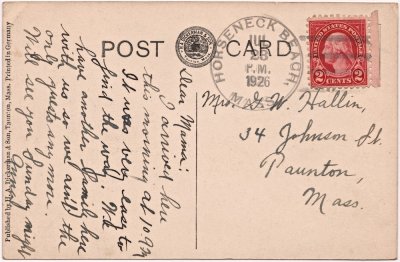 POST CARD
HORSENECK BEACH,
JUL
P.M.
1926
MASS.
UNITED STATES POSTAGE
2 CENTS 2
Mrs. G. W. Hallin,
34 Johnson St.
Taunton,
Mass.
Dear Mama:
I arrived here
this morning at 10
It was very easy to
find the way. We
have another family here
with us so we ain't the
only guests any more.
Will see you Sunday night
Published by & Son, Taunton, Mass. Printed in Germany